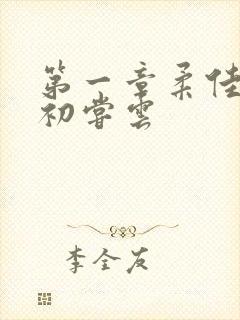 第一章柔佳
初尝云
李全友